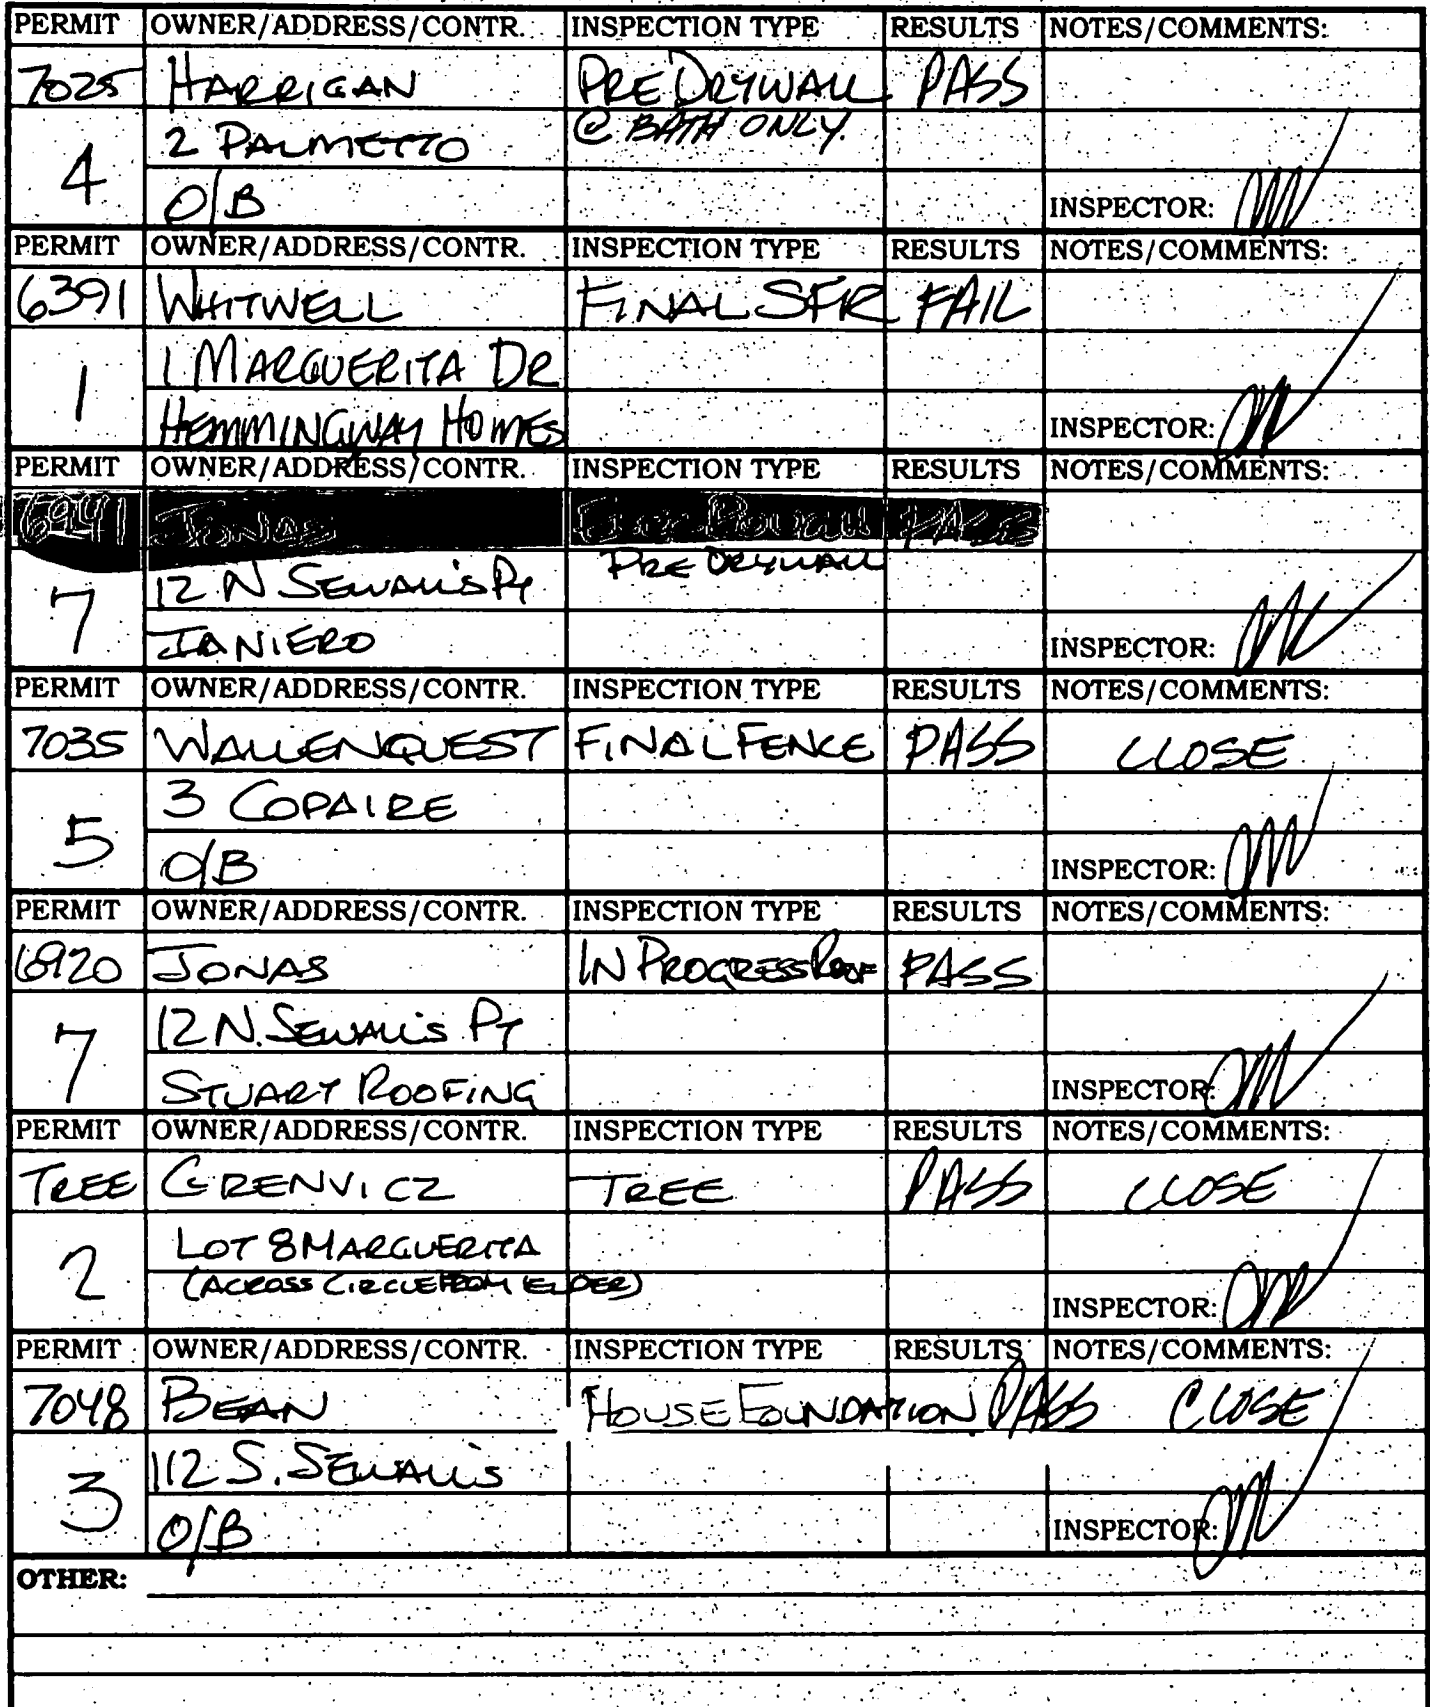 PERMIT OWNER/ADDRESS/CONTR. INSPECTION TYPE RESULTS NOTES/COMMENTS:
7025 HARRIGAN PRE DRYWALL PASS
4 2 PALMETTO @ BATH ONLY.
O/B INSPECTOR:
PERMIT OWNER/ADDRESS/CONTR. INSPECTION TYPE RESULTS NOTES/COMMENTS:
6391 WHITWELL FINAL SFR FAIL
1 1 MARGUERITA DR
HEMMINGWAY HOMES INSPECTOR:
PERMIT OWNER/ADDRESS/CONTR. INSPECTION TYPE RESULTS NOTES/COMMENTS:
6941 JONAS PASS
7 12 N SEWALL'S PT PRE DRYWALL
JANIERO INSPECTOR:
PERMIT OWNER/ADDRESS/CONTR. INSPECTION TYPE RESULTS NOTES/COMMENTS:
7035 WALLENQUEST FINAL FENCE PASS CLOSE
5 3 COPAIRE
O/B INSPECTOR:
PERMIT OWNER/ADDRESS/CONTR. INSPECTION TYPE RESULTS NOTES/COMMENTS:
6920 JONAS IN PROGRESS ROOF PASS
7 12 N. SEWALL'S PT
STUART ROOFING INSPECTOR:
PERMIT OWNER/ADDRESS/CONTR. INSPECTION TYPE RESULTS NOTES/COMMENTS:
TREE GRENVICZ TREE PASS CLOSE
2 LOT 8 MARGUERITA
(ACROSS CIRCLE FROM ELDER) INSPECTOR:
PERMIT OWNER/ADDRESS/CONTR. INSPECTION TYPE RESULTS NOTES/COMMENTS:
7048 BEAN HOUSE FOUNDATION PASS CLOSE
3 112 S. SEWALL'S
O/B INSPECTOR:
OTHER: